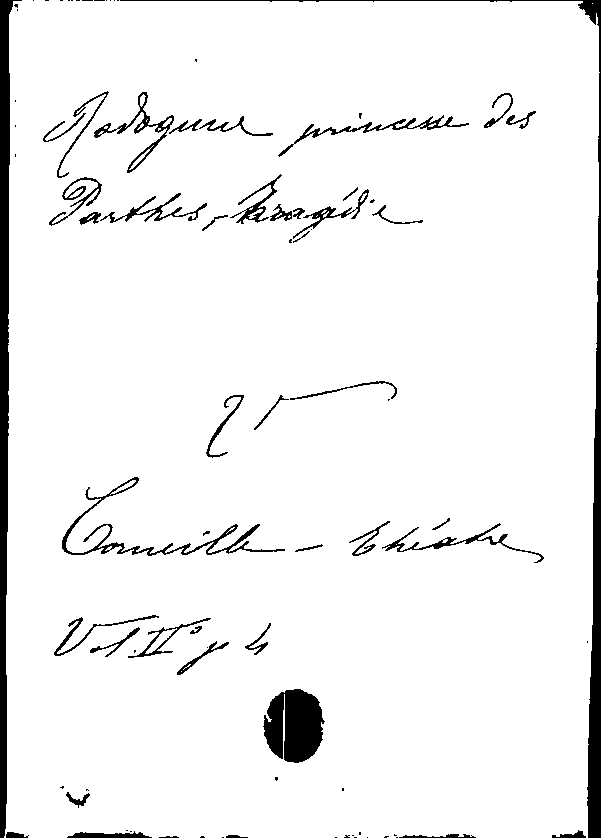 Rodogune princesse des
Parthes, tragédie
V
Corneille - théatre
Vol. IIº p 4